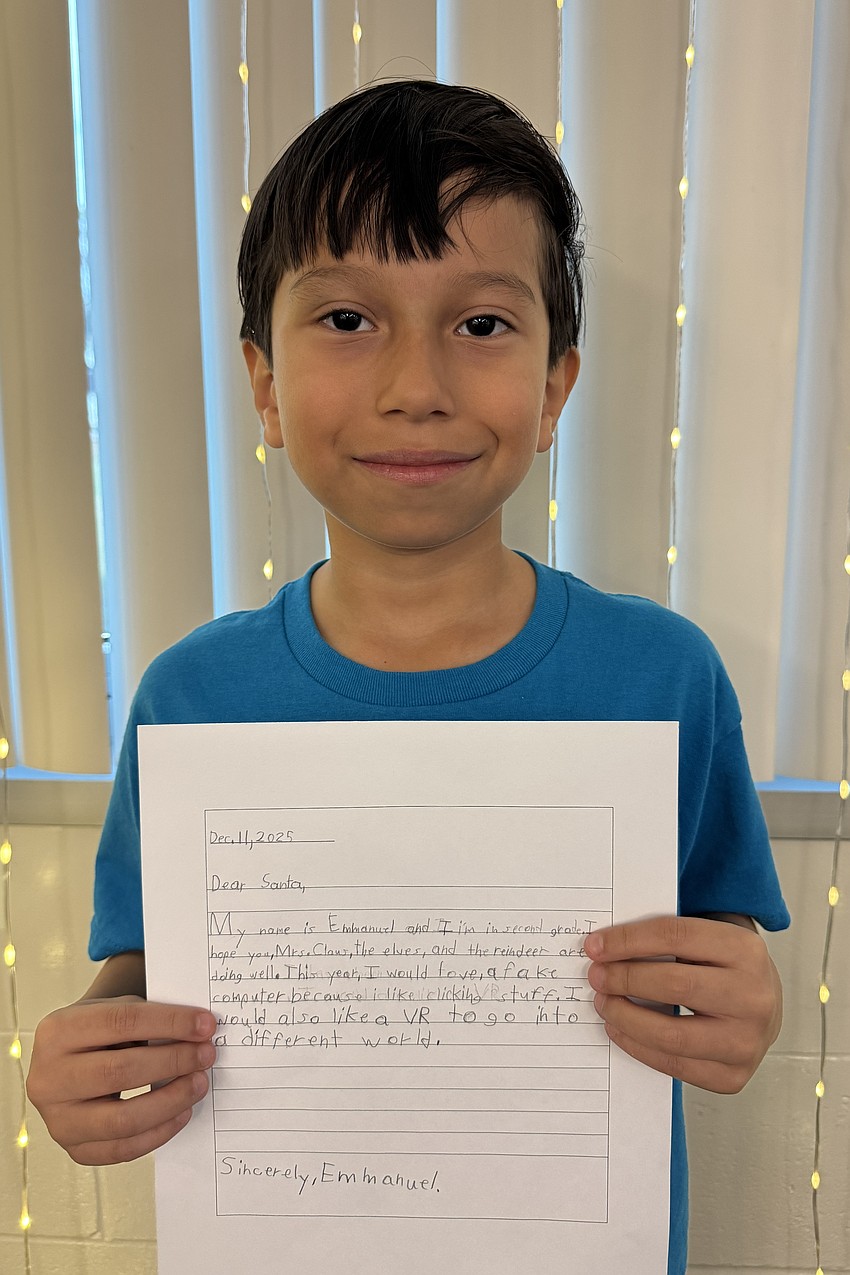 Dec. 11, 2025
Dear Santa,
My name is Emmanuel and I i'm in second grade. I
hope you, Mrs. Claus, the elves, and the reindeer are
doing well. This year, I would love, a fake
computer because i like clicking stuff. I
would also like a VR to go into
a different world.
Sincerely, Emmanuel.